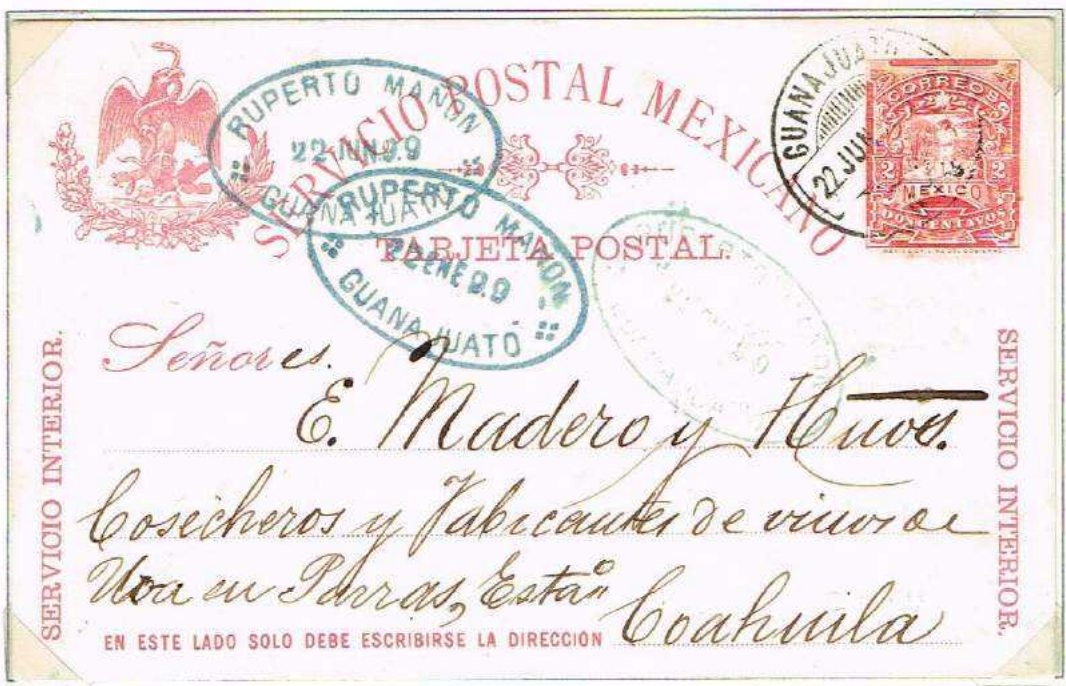 SERVICIO POSTAL MEXICANO
TARJETA POSTAL.
RUPERTO MAÑON
22 JUN 99
GUANAJUATO
RUPERTO MAÑON
22 ENE 99
GUANAJUATO
GUANAJUATO
22 JUN
CORREOS
2 2
MEXICO
DOS CENTAVOS
SERVICIO INTERIOR.
SERVICIO INTERIOR.
Señores.
E. Madero y Hnos.
Cosecheros y Fabricantes de vinos de
Uva en Parras, Estº
Coahuila
EN ESTE LADO SOLO DEBE ESCRIBIRSE LA DIRECCION